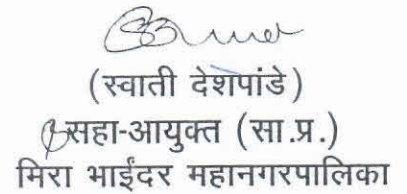 (स्वाती देशपांडे)
सहा-आयुक्त (सा.प्र.)
मिरा भाईंदर महानगरपालिका